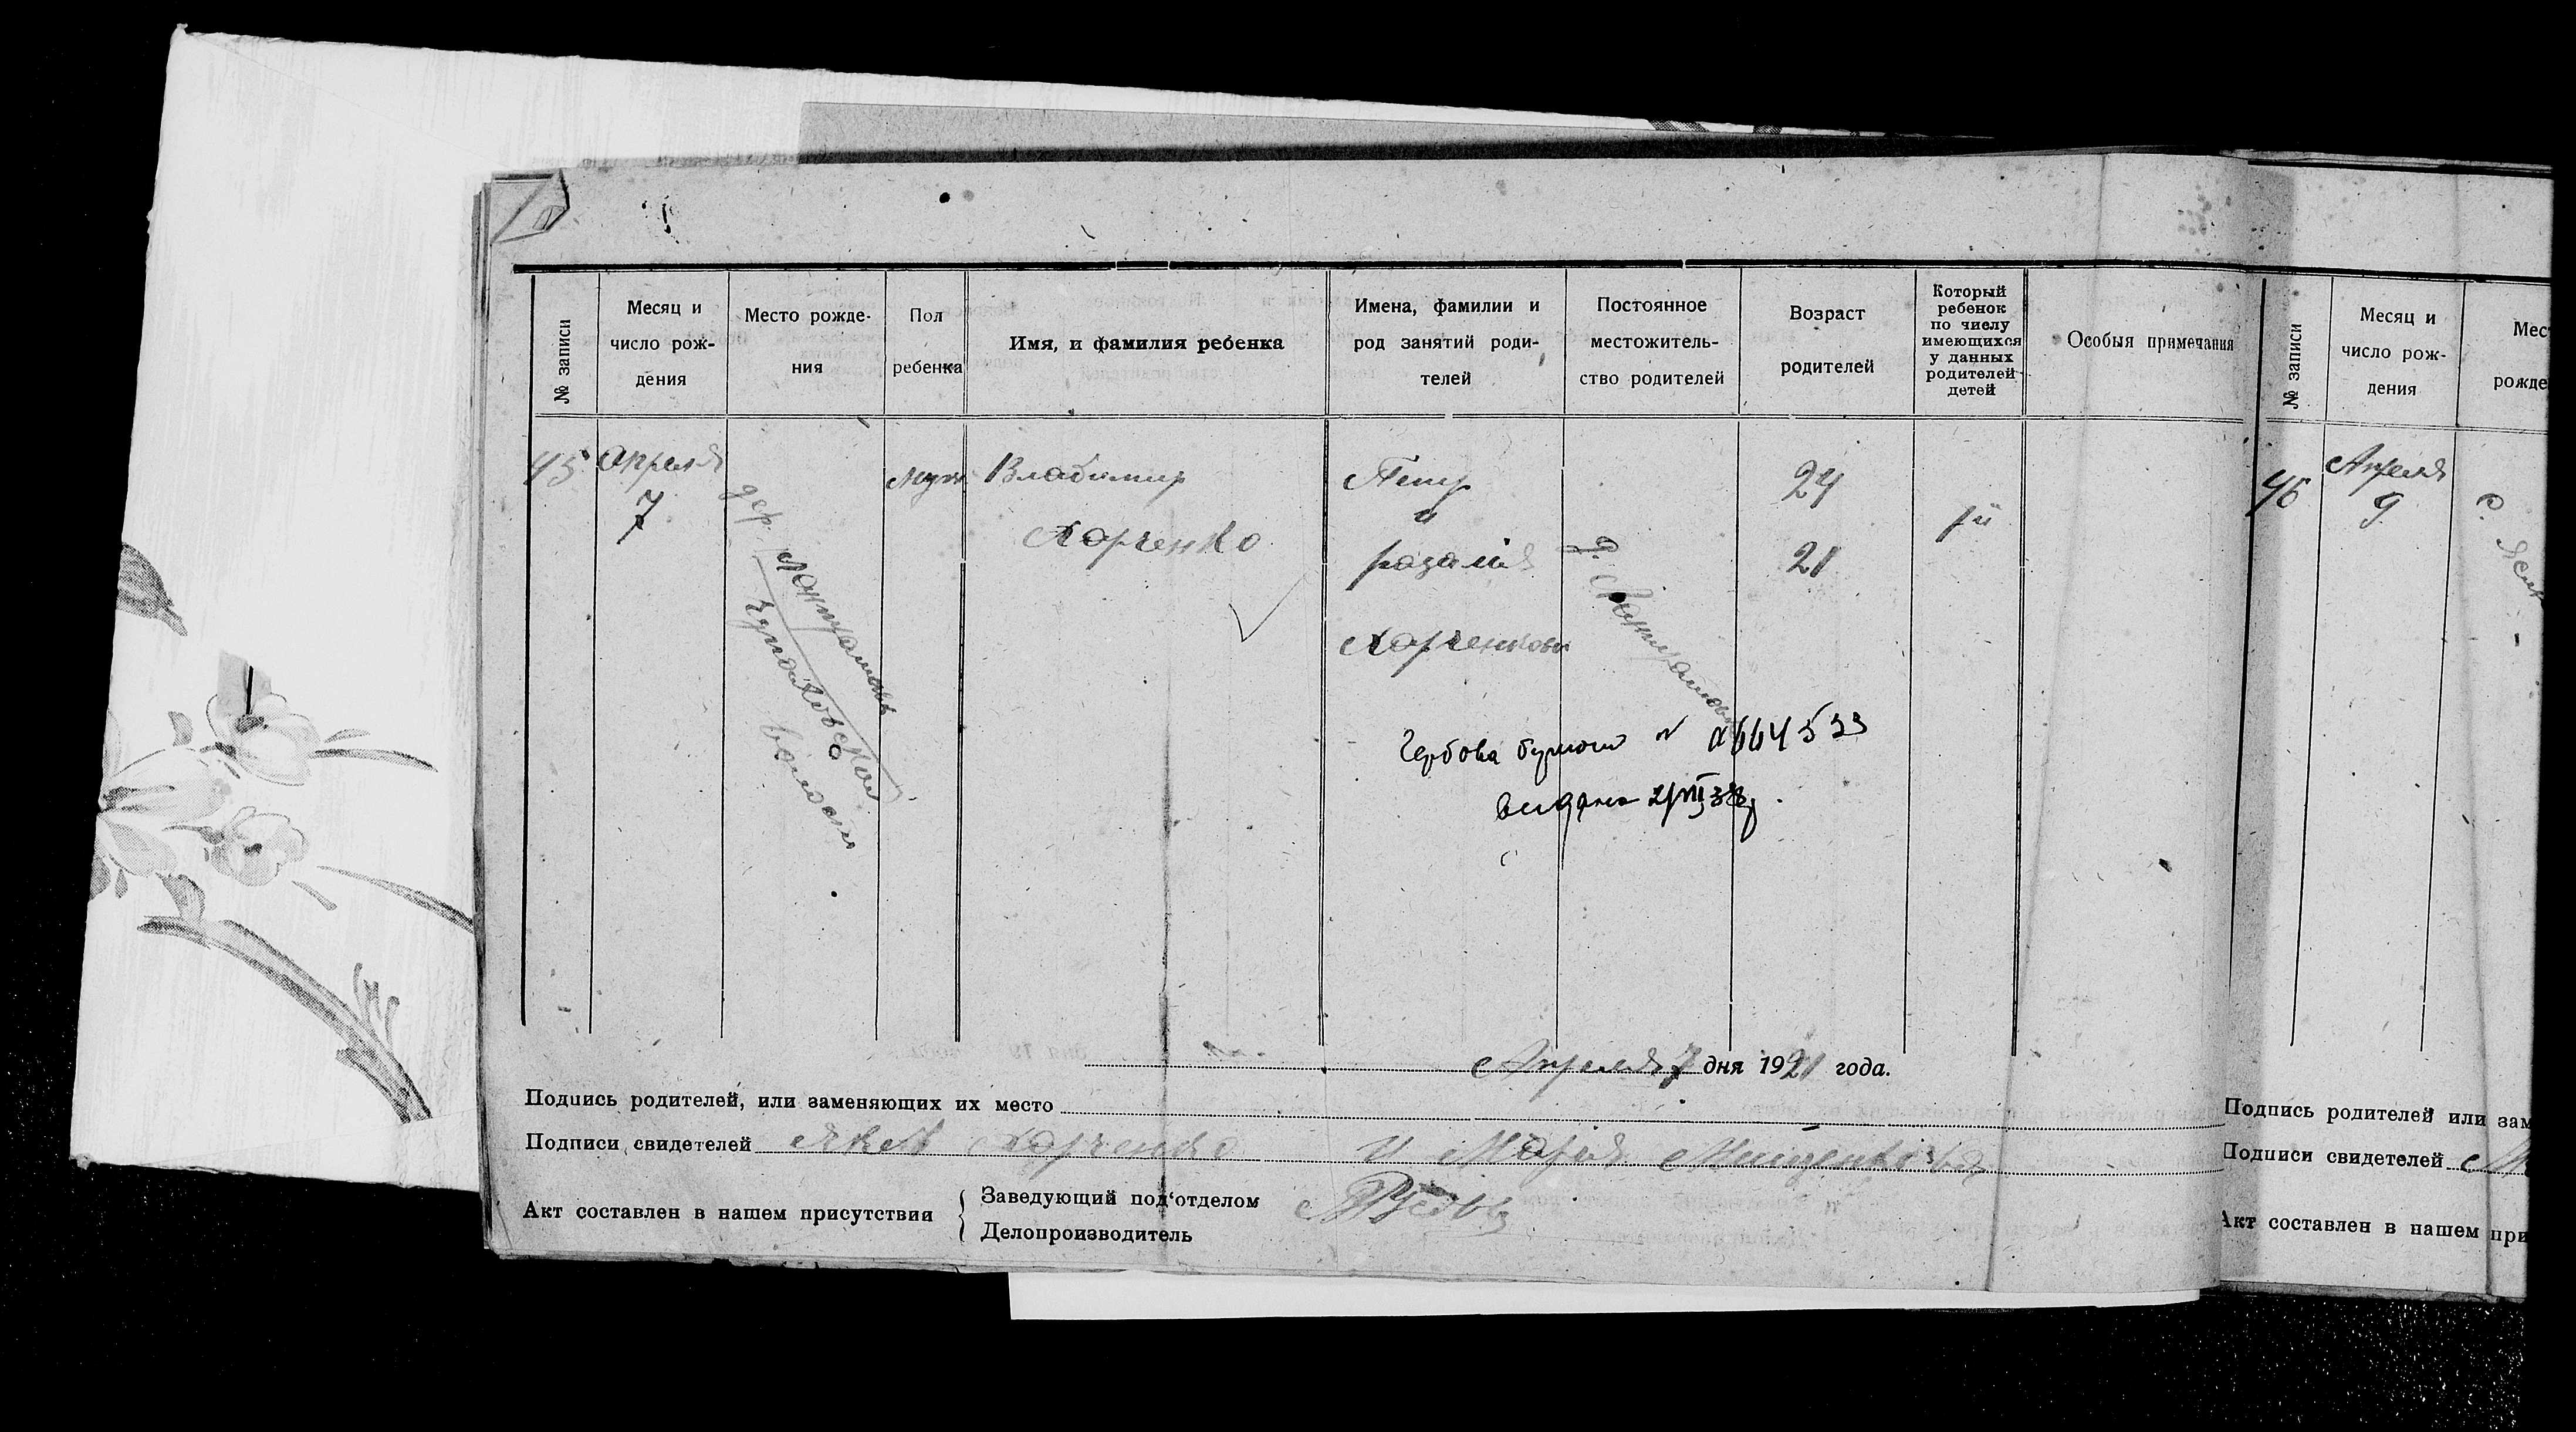 № записи
Месяц и
число рож-
дения
Место рожде-
ния
Пол
ребенка
Имя, и фамилия ребенка
Имена, фамилии и
род занятий роди-
телей
Постоянное
местожитель-
ство родителей
Возраст
родителей
Который
ребенок
по числу
имеющихся
у данных
родителей
детей
Особыя примечания
45
Апреля
7
дер.
волости
муж
Владимир
Харченко
Петр
и
Харченковы
д.
24
21
1й
Гербова
№ 664533
видана
Апреля 7 дня 1921 года.
Подпись родителей, или заменяющих их место
Подписи свидетелей Яков Харченко и Мария
Акт составлен в нашем присутствии
Заведующий под'отделом
Делопроизводитель
№ записи
Месяц и
число рож-
дения
Мес
рожде
46
Апреля
9
Подпись родителей или зам
Подписи свидетелей
Акт составлен в нашем при